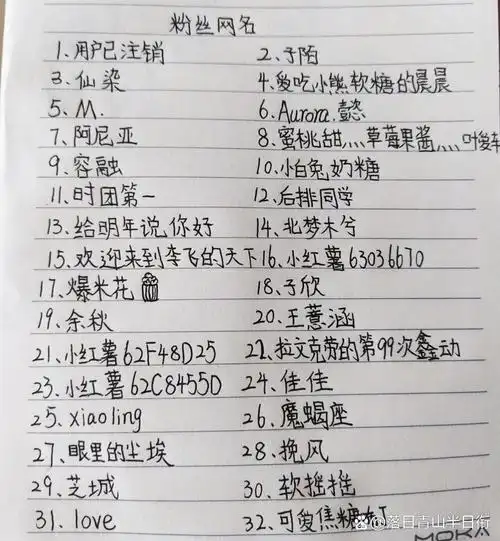 粉丝网名
1.用户已注销 2.于陌
3.仙染 4.爱吃小熊软糖的晨晨
5.M. 6.Aurora.懿
7.阿尼亚 8.蜜桃甜灬草莓果酱灬叶俊
9.容融 10.小白兔,奶糖
11.时团第一 12.后排同学
13.给明年说,你好 14.北梦木兮
15.欢迎来到李飞的天下 16.小红薯63036670
17.爆米花🍿 18.于欣
19.余秋 20.王薏涵
21.小红薯62F48D25 22.拉文克劳的第99次鑫动
23.小红薯62C8455D 24.佳佳
25.xiaoling 26.魔蝎座
27.眼里的尘埃 28.挽风
29.芝城 30.软
31.love 32.可爱焦糖
@落日青山半日街
MOKA